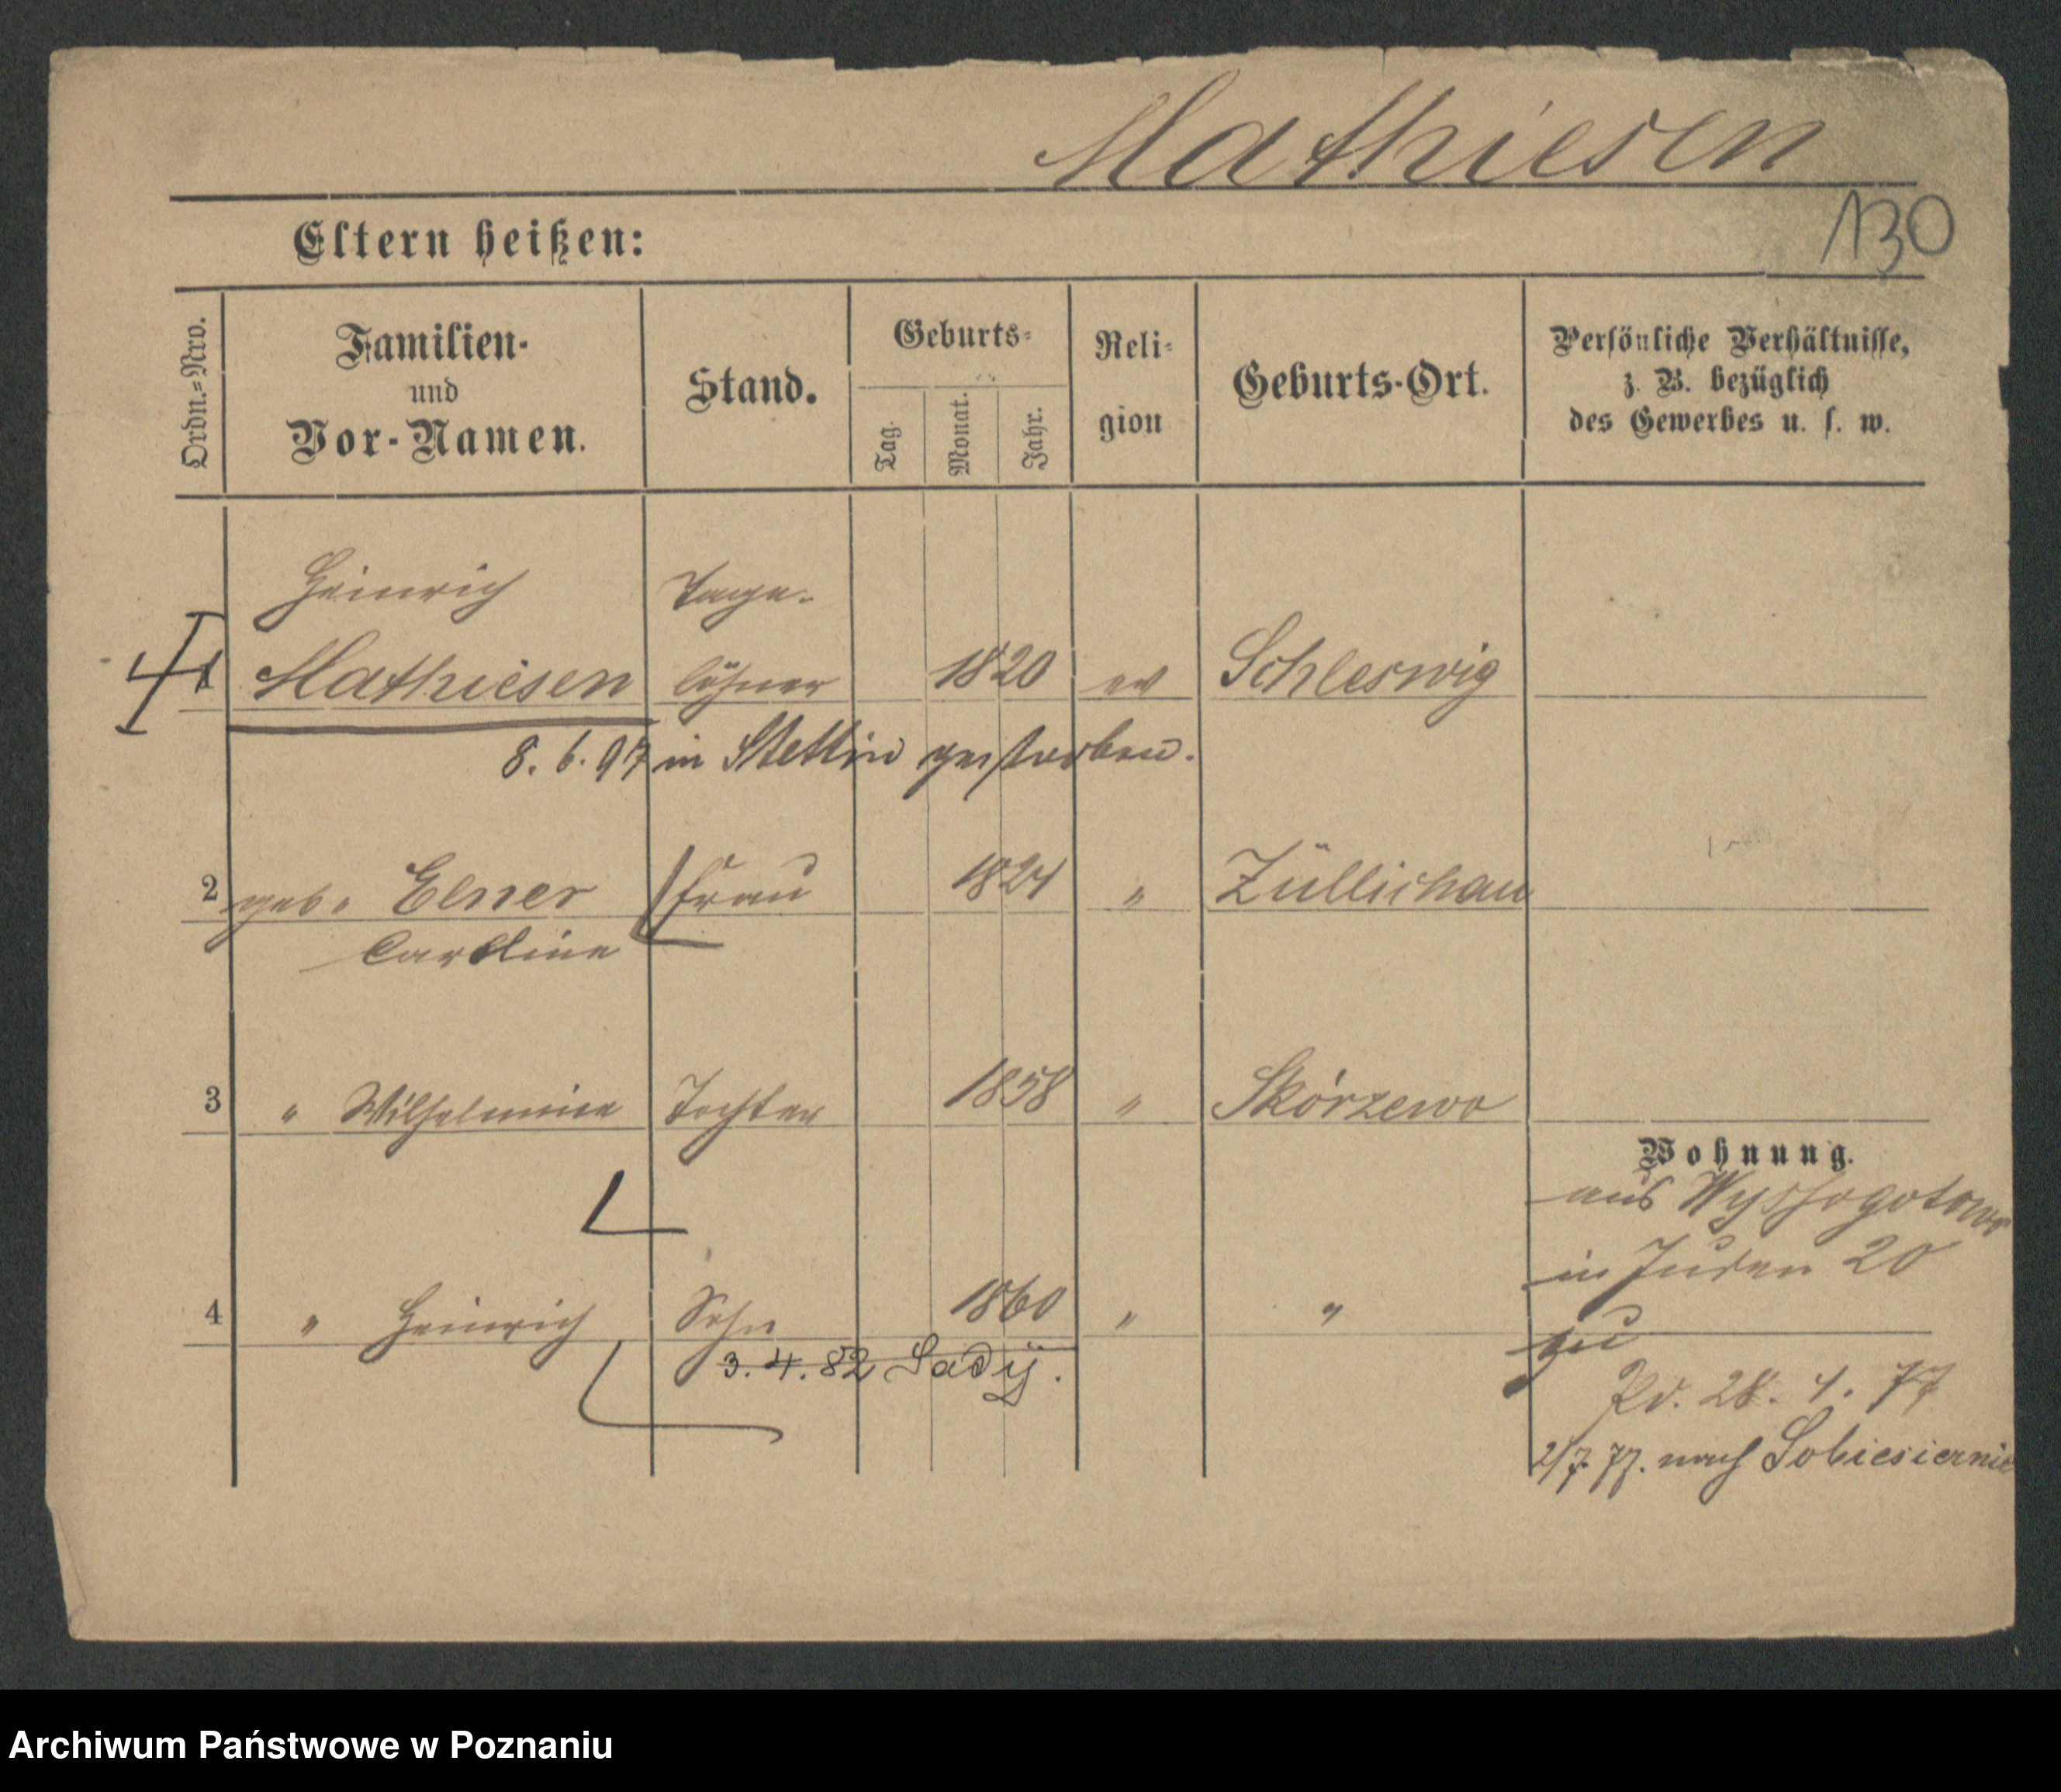 Mathiesen
130
Eltern heißen:
Ordn.=Nro.
Familien-
und
Vor-Namen.
Stand.
Geburts=
Tag.
Monat.
Jahr.
Reli=
gion
Geburts-Ort.
Persönliche Verhältnisse,
z. B. bezüglich
des Gewerbes u. s. w.
Heinrich Tage-
1 Mathiesen löhner 1820 ev Schleswig
8. 6. 97 in Stettin gestorben.
2 geb. Elsner Frau 1824 " Züllichau
Caroline
3 " Wilhelmine Tochter 1858 " Skórzewo
Wohnung.
aus Wyssogotowo
in Juden 20
4 " Heinrich Sohn 1860 " "
zu
3. 4. 82 Sady.
28. 4. 77
2/7. 77. nach Sobiesiernie
Archiwum Państwowe w Poznaniu